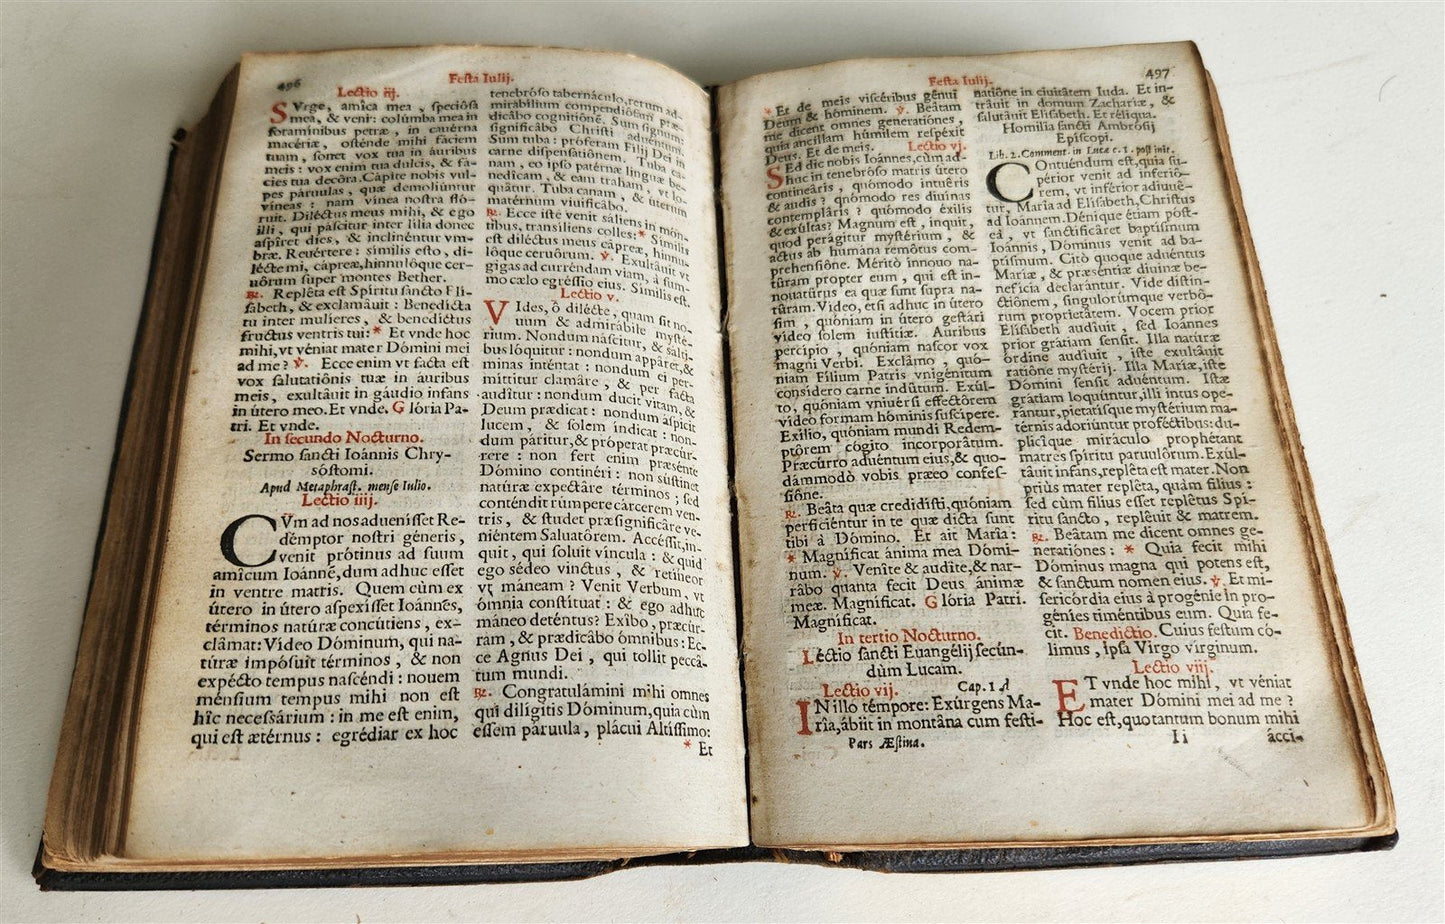 496
Festa Iulij.
Lectio iij.
SVrge, amîca mea, speciósa
mea, & veni: colúmba mea in
foramínibus petræ, in cavérna
macériæ, osténde mihi fáciem
tuam, sonet vox tua in áuribus
meis: vox enim tua dulcis, & fá-
cies tua decôra. Cápite nobis vul-
pes páruulas, quæ demoliúntur
víneas: nam vínea nostra flô-
ruit. Diléctus meus mihi, & ego
illi, qui páscitur inter lilia donec
aspîret dies, & inclinéntur vm-
bræ. Reuértere: símilis esto, di-
lécte mi, cápreæ, hinnulôque cer-
uôrum super montes Bether.
℟. Replêta est Spíritu sancto Eli-
sabeth, & exclamâuit: Benedícta
tu inter mulíeres, & benedíctus
fructus ventris tui: * Et vnde hoc
mihi, vt véniat mater Dómini mei
ad me? ℣. Ecce enim vt facta est
vox salutatiônis tuæ in áuribus
meis, exultâuit in gáudio infans
in útero meo. Et vnde. Glória Pa-
tri. Et vnde.
In secundo Nocturno.
Sermo sancti Ioánnis Chry-
sóstomi.
Apud Metaphrast. mense Iulio.
Lectio iiij.
CVm ad nos adueníssет Re-
démptor nostri géneris,
venit prótinus ad suum
amîcum Ioánnē, dum adhuc esset
in ventre matris. Quem cùm ex
útero in útero aspexísset Ioánnes,
términos natúræ concútiens, ex-
clâmat: Video Dóminum, qui na-
túræ impósuit términos, & non
expécto tempus nascéndi: nouem
ménsium tempus mihi non est
hîc necessárium: in me est enim,
qui est ætérnus: egrédiar ex hoc
tenebróso tabernáculo, rerum ad-
mirabílium compendiósam præ-
dicâbo cognitiônē. Sum signum:
significâbo Christi aduéntum.
Sum tuba: próferam Filij Dei in
carne dispensatiônem. Tuba ca-
nam, eo ipso patérnæ linguæ be-
nedícam, & eam traham, vt lo-
quátur. Tuba canam, & úterum
matérnum viuificâbo.
℟. Ecce iste venit sáliens in món-
tibus, transíliens colles: * Símilis
est diléctus meus cápreæ, hínnu-
lôque ceruôrum. ℣. Exultâuit vt
gigas ad curréndam viam, à sum-
mo cælo egréssio eius. Símilis est.
Lectio v.
VIdes, ô dilécte, quam sit no-
uum & admirábile mysté-
rium. Nondum náscitur, & sálti-
bus lóquitur: nondum appâret, &
minas inténtat: nondum ei per-
míttitur clamâre, & per facta
audítur: nondum ducit vitam, &
Deum prædicat: nondum áspicit
lucem, & solem índicat: non-
dum páritur, & próperat præcúr-
rere: non fert enim præsénte
Dómino continéri: non sústinet
natúræ expectâre términos; sed
conténdit rúmpere cárcerem ven-
tris, & studet præsignificâre ve-
niéntem Saluatôrem. Accéssit, in-
quit, qui soluit víncula: & quid
ego sédeo vinctus, & retíneor
vt máneam? Venit Verbum, vt
ómnia constítuat: & ego adhuc
máneo deténtus? Exîbo, præcúr-
ram, & prædicâbo ómnibus: Ec-
ce Agnus Dei, qui tollit peccâ-
tum mundi.
℟. Congratulámini mihi omnes
qui dilígitis Dóminum, quia cùm
essem páruula, plácui Altíssimo:
* Et
Festa Iulij.
497
* Et de meis viscéribus génui
Deum & hóminem. ℣. Beâtam
me dicent omnes generatiónes,
quia ancíllam húmilem respéxit
Deus. Et de meis. Lectio vj.
SEd dic nobis Ioánnes, cùm ad-
huc in tenebróso matris útero
contineâris, quómodo intuêris
& audis? quómodo res diuínas
contemplâris? quómodo éxilis
& exúltas? Magnum est, inquit,
quod perágitur mystérium, &
actus ab humána remótus com-
prehensiône. Méritò innouo na-
túram propter eum, qui est in-
nouatúrus ea quæ sunt supra na-
túram. Video, etsi adhuc in útero
sim, quóniam in útero gestári
video solem iustítiæ. Auribus
percípio, quóniam nascor vox
magni Verbi. Exclâmo, quó-
niam Fílium Patris vnigénitum
consídero carne indútum. Exúl-
to, quóniam vniuérsi effectôrem
video formam hóminis suscípere.
Exílio, quóniam mundi Redem-
ptôrem cógito incorporâtum.
Præcúrro aduéntum eius, & quo-
dámmodò vobis præeo confes-
siône.
℟. Beâta quæ credidísti, quóniam
perficiéntur in te quæ dicta sunt
tibi à Dómino. Et ait María:
* Magníficat ánima mea Dómi-
num. ℣. Venîte & audîte, & nar-
râbo quanta fecit Deus ánimæ
meæ. Magníficat. Glória Patri.
Magníficat.
In tertio Nocturno.
Léctio sancti Euangélij secún-
dùm Lucam.
Lectio vij. Cap. 1 A
IN illo témpore: Exúrgens Ma-
rîa, ábiit in montâna cum festi-
Pars Æstiua.
natiône in ciuitâtem Iuda. Et in-
trâuit in domum Zacharíæ, &
salutâuit Elísabeth. Et réliqua.
Homilia sancti Ambrósij
Epíscopi.
Lib. 2. Comment. in Luca c. 1. post init.
COntuéndum est, quia su-
périor venit ad inferió-
rem, vt inférior adiuuê-
tur, María ad Elísabeth, Christus
ad Ioánnem. Dénique étiam póst-
eà, vt sanctificâret baptísmum
Ioánnis, Dóminus venit ad ba-
ptísmum. Citò quoque aduéntus
Maríæ, & præséntiæ diuínæ be-
nefícia declarántur. Vide distin-
ctiônem, singulorúmque verbô-
rum proprietâtem. Vocem prior
Elísabeth audíuit, sed Ioánnes
prior grátiam sensit. Illa natúræ
órdine audíuit, iste exultâuit
ratióne mystérij. Illa Maríæ, iste
Dómini sensit aduéntum. Istæ
grátiam loquúntur, illi intus ope-
rántur, pietatísque mystérium ma-
térnis adoriúntur proféctibus: du-
plicíque miráculo prophétant
matres spíritu paruulôrum. Exúl-
tâuit infans, replêta est mater. Non
priùs mater replêta, quàm fílius:
sed cùm fílius esset replêtus Spí-
ritu sancto, replêuit & matrem.
℟. Beâtam me dicent omnes ge-
neratiónes: * Quia fecit mihi
Dóminus magna qui potens est,
& sanctum nomen eius. ℣. Et mi-
sericórdia eius à progénie in pro-
génies timéntibus eum. Quia fe-
cit. Benedictio. Cuius festum có-
limus, ipsa Virgo vírginum.
Lectio viij.
ET vnde hoc mihi, vt véniat
mater Dómini mei ad me?
Hoc est, quotantum bonum mihi
Ii
ácci-